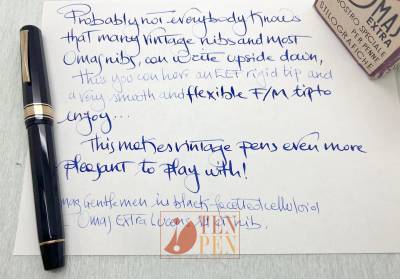 Probably not everybody knows
that many vintage nibs and most
Omas nibs, can write upside down,
thus you can have an EEF rigid tip and
a very smooth and flexible F/M tip to
enjoy...
This makes vintage pens even more
pleasant to play with!
Omas Gentlemen in black facetted celluloid
Omas Extra Lucens 14K nib.
OMAS
EXTRA
NOSTRO SPECIALE
PER PENNE
STILOGRAFICHE
TENPEN